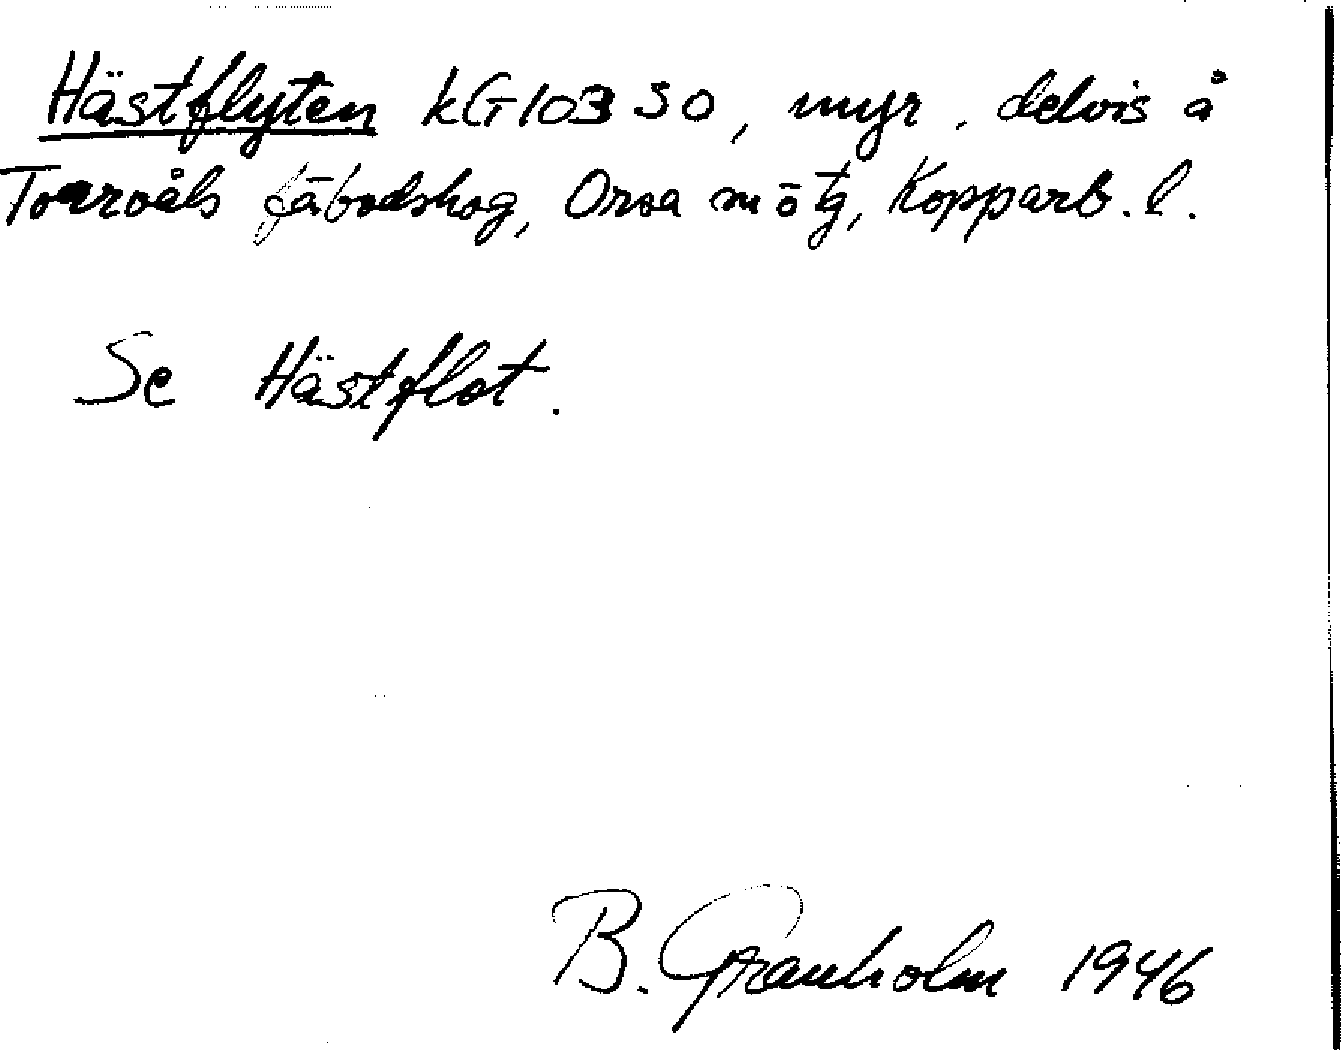 Hästflyten kG103 SO, myr, delvis å
Torrvåls fäbodskog, Orsa m ö tg, Kopparb. l.
Se Hästflot.
B. Granholm 1946